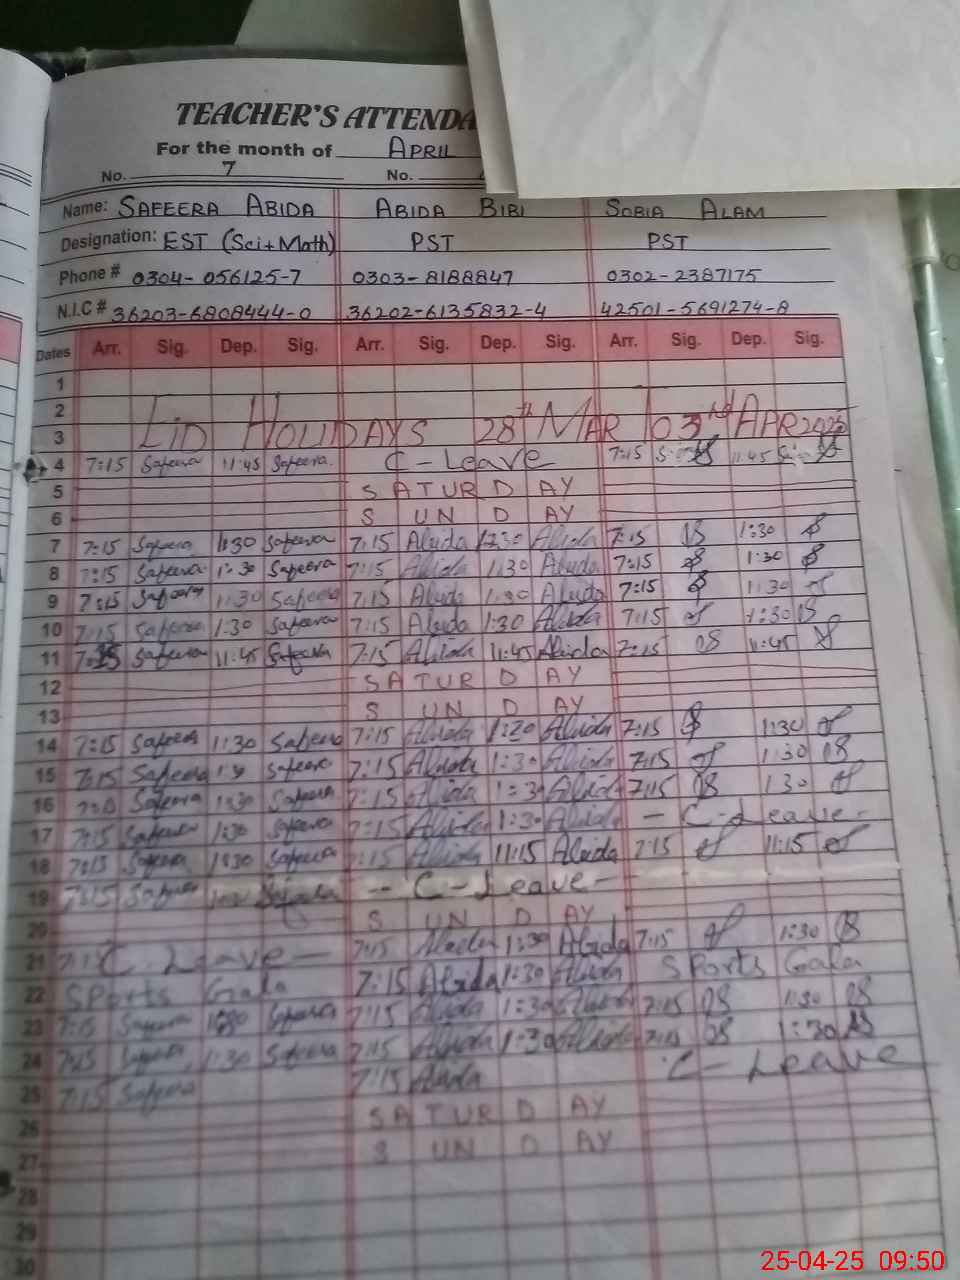 TEACHER'S ATTENDA
For the month of APRIL
No. 7 No.
Name: SAFEERA ABIDA ABIDA BIBI SOBIA ALAM
Designation: EST (Sci+Math) PST PST
Phone # 0304-056125-7 0303-8188847 0302-2387175
N.I.C # 36203-6808444-0 36202-6135832-4 42501-5691274-8
Dates Arr. Sig. Dep. Sig. Arr. Sig. Dep. Sig. Arr. Sig. Dep. Sig.
1
2
3 EID HOLIDAYS 28th MAR TO 3rd APR 2025
4 7:15 Safeera 11:45 Safeera C-Leave 7:15 11:45
5 SATURDAY
6 SUNDAY
7 7:15 Safeera 1:30 Safeera 7:15 Abida 1:30 Abida 7:15 1:30
8 7:15 Safeera 1:30 Safeera 7:15 Abida 1:30 Abida 7:15 1:30
9 7:15 Safeera 1:30 Safeera 7:15 Abida 1:30 Abida 7:15 1:30
10 7:15 Safeera 1:30 Safeera 7:15 Abida 1:30 Abida 7:15 1:30
11 7:15 Safeera 11:45 Safeera 7:15 Abida 11:45 Abida 7:15 11:45
12 SATURDAY
13 SUNDAY
14 7:15 Safeera 1:30 Safeera 7:15 Abida 1:30 Abida 7:15 1:30
15 7:15 Safeera 1:30 Safeera 7:15 Abida 1:30 Abida 7:15 1:30
16 Safeera 1:30 Safeera 7:15 Abida 1:30 Abida 7:15 1:30
17 7:15 Safeera 1:30 Safeera 7:15 Abida 1:30 Abida - C-Leave-
18 7:15 Safeera 1:30 Safeera 7:15 Abida 11:15 Abida 7:15 11:15
19 7:15 Safeera Safeera - C-Leave-
20 SUNDAY
21 C Leave - 7:15 Abida 1:30 Abida 7:15 1:30
22 SPorts Gala 7:15 Abida 1:30 Abida SPorts Gala
23 7:15 Safeera 1:30 Safeera 7:15 Abida 1:30 Abida 7:15 1:30
24 7:15 Safeera 1:30 Safeera 7:15 Abida 1:30 Abida 7:15 1:30
25 7:15 Safeera 7:15 Abida C-Leave
26 SATURDAY
27 SUNDAY
28
29
30
25-04-25 09:50